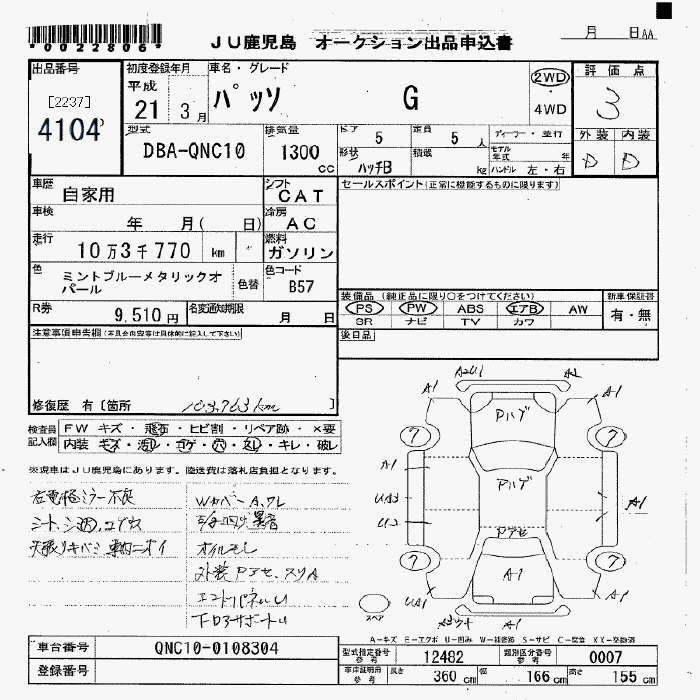 *0022806*
JU鹿児島 オークション出品申込書
月 日AA
出品番号
[2237]
4104
初度登録年月
平成
21 3月
車名・グレード
パッソ G
2WD
4WD
評価点
3
外装 内装
D D
型式
DBA-QNC10
排気量
1300cc
ドア 5
定員 5人
ディーラー・並行
形状 ハッチB
積載 kg
モデル年式 年
ハンドル 左・右
車歴 自家用
シフト CAT
セールスポイント(正常に機能するものに限ります)
車検 年 月( 日)
冷房 AC
走行 10万3千770 km
燃料 ガソリン
色 ミントブルーメタリックオパール
色替
色コード B57
R券 9,510円
名変通知期限 月 日
装備品 (純正品に限り○をつけてください)
新車保証書
PS PW ABS エアB AW
有・無
SR ナビ TV カワ
後日品
注意事項申告欄(不具合内容等は具体的に記入して下さい)
修復歴 有〔箇所 103,763km 〕
検査員記入欄
FW キズ・飛石・ヒビ割・リペア跡・X要
内装 キズ・汚レ・コゲ・穴・スレ・キレ・破レ
※現車はJU鹿児島にあります。陸送費は落札店負担となります。
左電格ミラー不良
Wカバー A,ワレ
オイルモレ
外装Pアセ、スリA
A2U1 A2
A1 A1
Pハゲ
7 7
A1
Pハゲ
UA3
A1
U2
Pアセ
7 7
A1
UA1 A1
スペア
A-キズ E-エクボ U-凹み W-補修跡 S-サビ C-腐食 XX-交換済
車台番号 QNC10-0108304
登録番号
型式指定番号 参考 12482
類別区分番号 参考 0007
車庫証明用 参考 長さ 360cm 幅 166cm 高さ 155cm